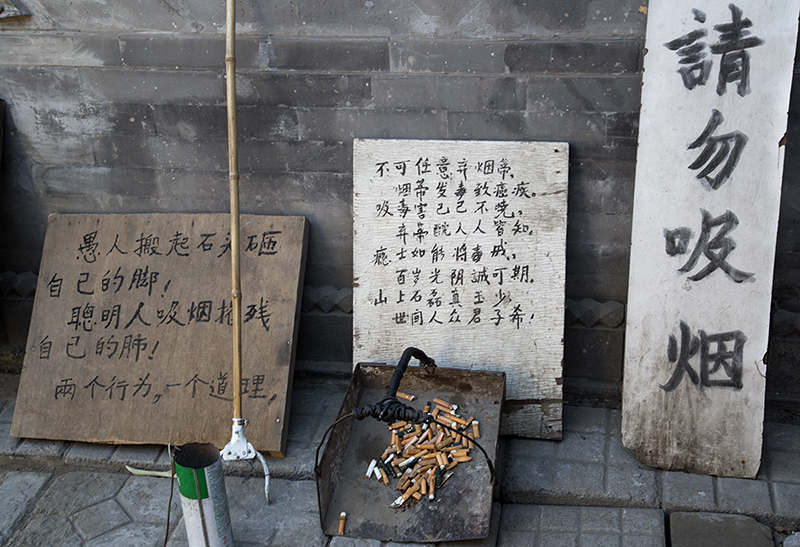 愚人搬起石头砸
自己的脚！
聪明人吸烟摧残
自己的肺！
兩个行为，一个道理，
不可任意弃烟蒂，
烟蒂发毒致癌疾。
吸毒害己己不晓，
弃蒂酖人人皆知。
瘾士如能将毒戒，
百岁光阴誠可期。
山上石磊真玉少，
世间人众君子希！
請勿吸烟